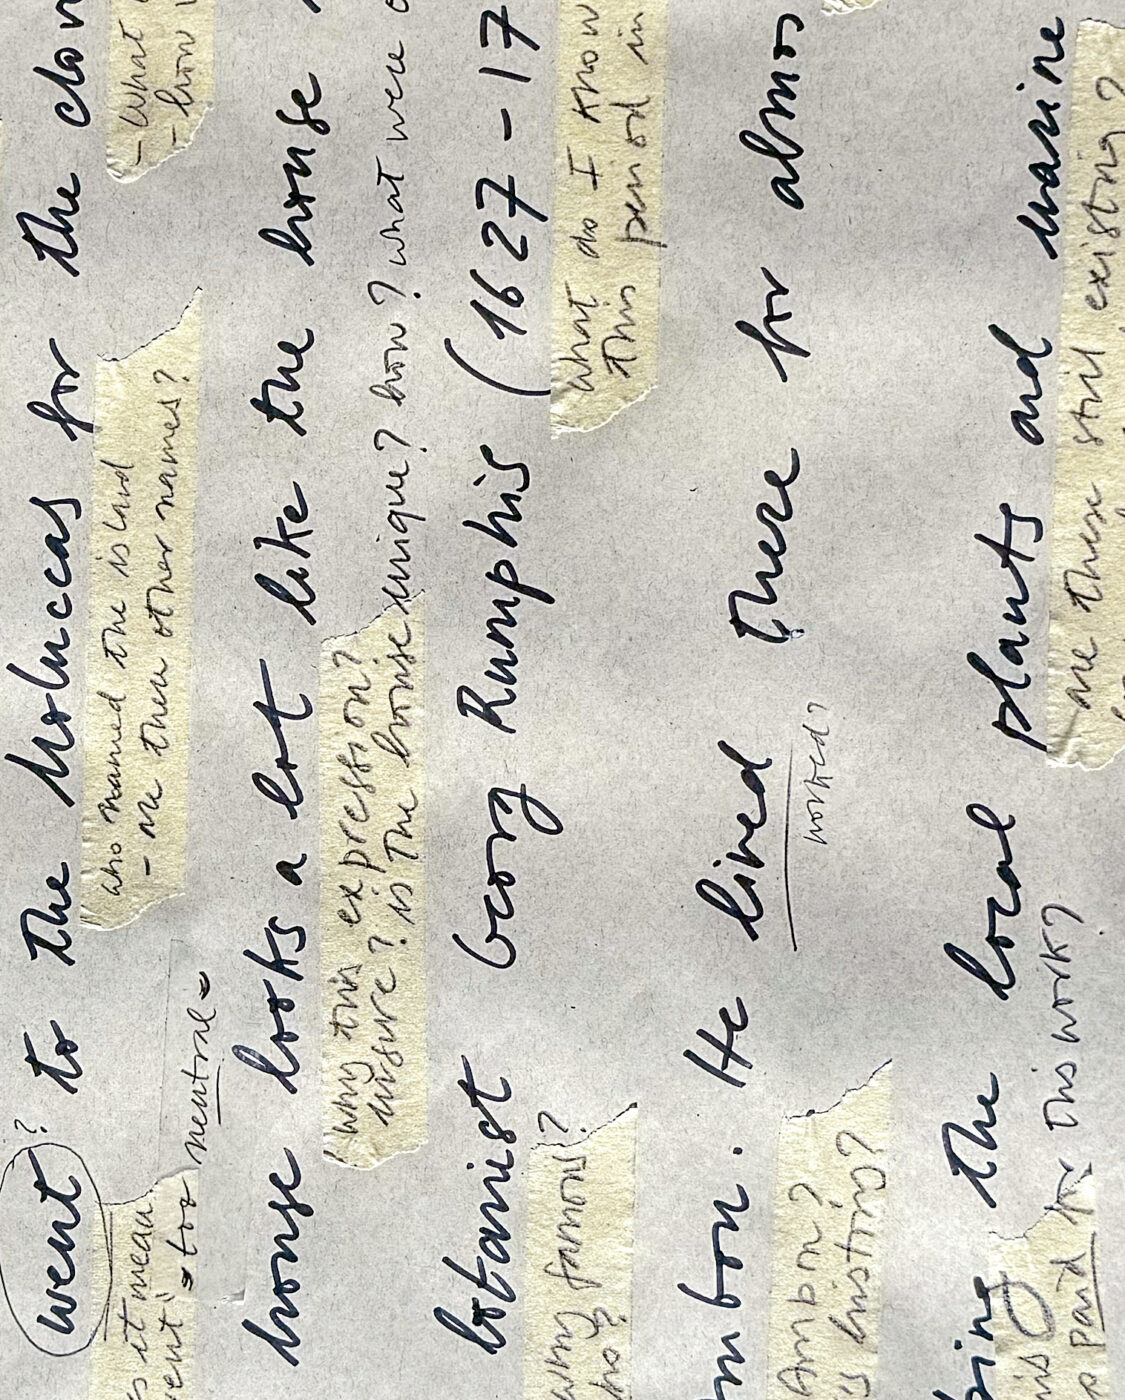 went? to the Moluccas for the clov
- what
- how
who named the island
- are there other names?
s it mean
vent" → too neutral
house looks a lot like the house
why this expression?
unsure? is the house unique? how? what were
botanist Georg Rumphis (1627 - 17
why famous?
ho?
what do I know
this period in
mbon. He lived there for almos
worked?
Ambon?
s history?
ing the local plants and marine
are these still existing?
paid for this work?